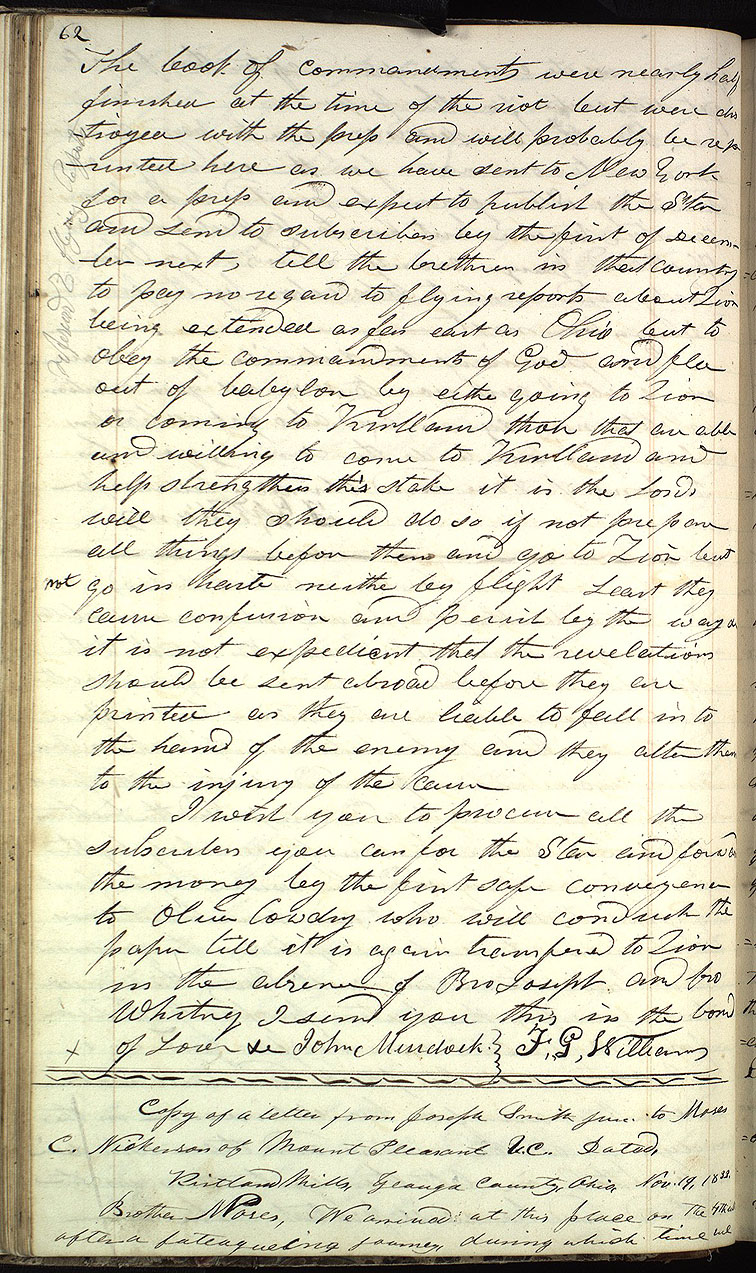 62
The book of commandments were nearly half
finished at the time of the riot but were des
troyed with the press and will probably be rep
rinted here as we have sent to New York
for a press and expect to publish the Star
and send to subscribers by the first of Decem
ber next, tell the brethren in that country
to pay no regard to flying reports about Zion
being extended as far east as Ohio but to
obey the commandments of God and flee
out of babylon by eithe going to Zion
or coming to Kirtland those that are able
and willing to come to Kirtland and
help strengthen this stake it is the Lords
will they should do so if not prepare
all things before them and go to Zion but
not go in haste neithe by flight Least they
cause confusion and peril by the way as
it is not expedient that the revelations
should be sent abroad before they are
printed as they are liable to fall in to
the hand of the enemy and they alter them
to the injury of the cause
I wish you to procure all the
subscribers you can for the Star and forward
the money by the first safe conveyence
to Oliver Cowdry who will conduct the
paper till it is again transfered to Zion
in the absence of Bro Joseph and bro
Whitney I send you this in the bond
x of Love &c John Murdock } F, G, Williams
Copy of a letter from Joseph Smith jun. to Moses
C. Nickerson of Mount Pleasant U.C. Dated,
Kirtland Mills, Geauga County, Ohio, Nov. 19, 1833.
Brother Moses, We arrived at this place on the 4th
after a fatagueing journey, during which time we